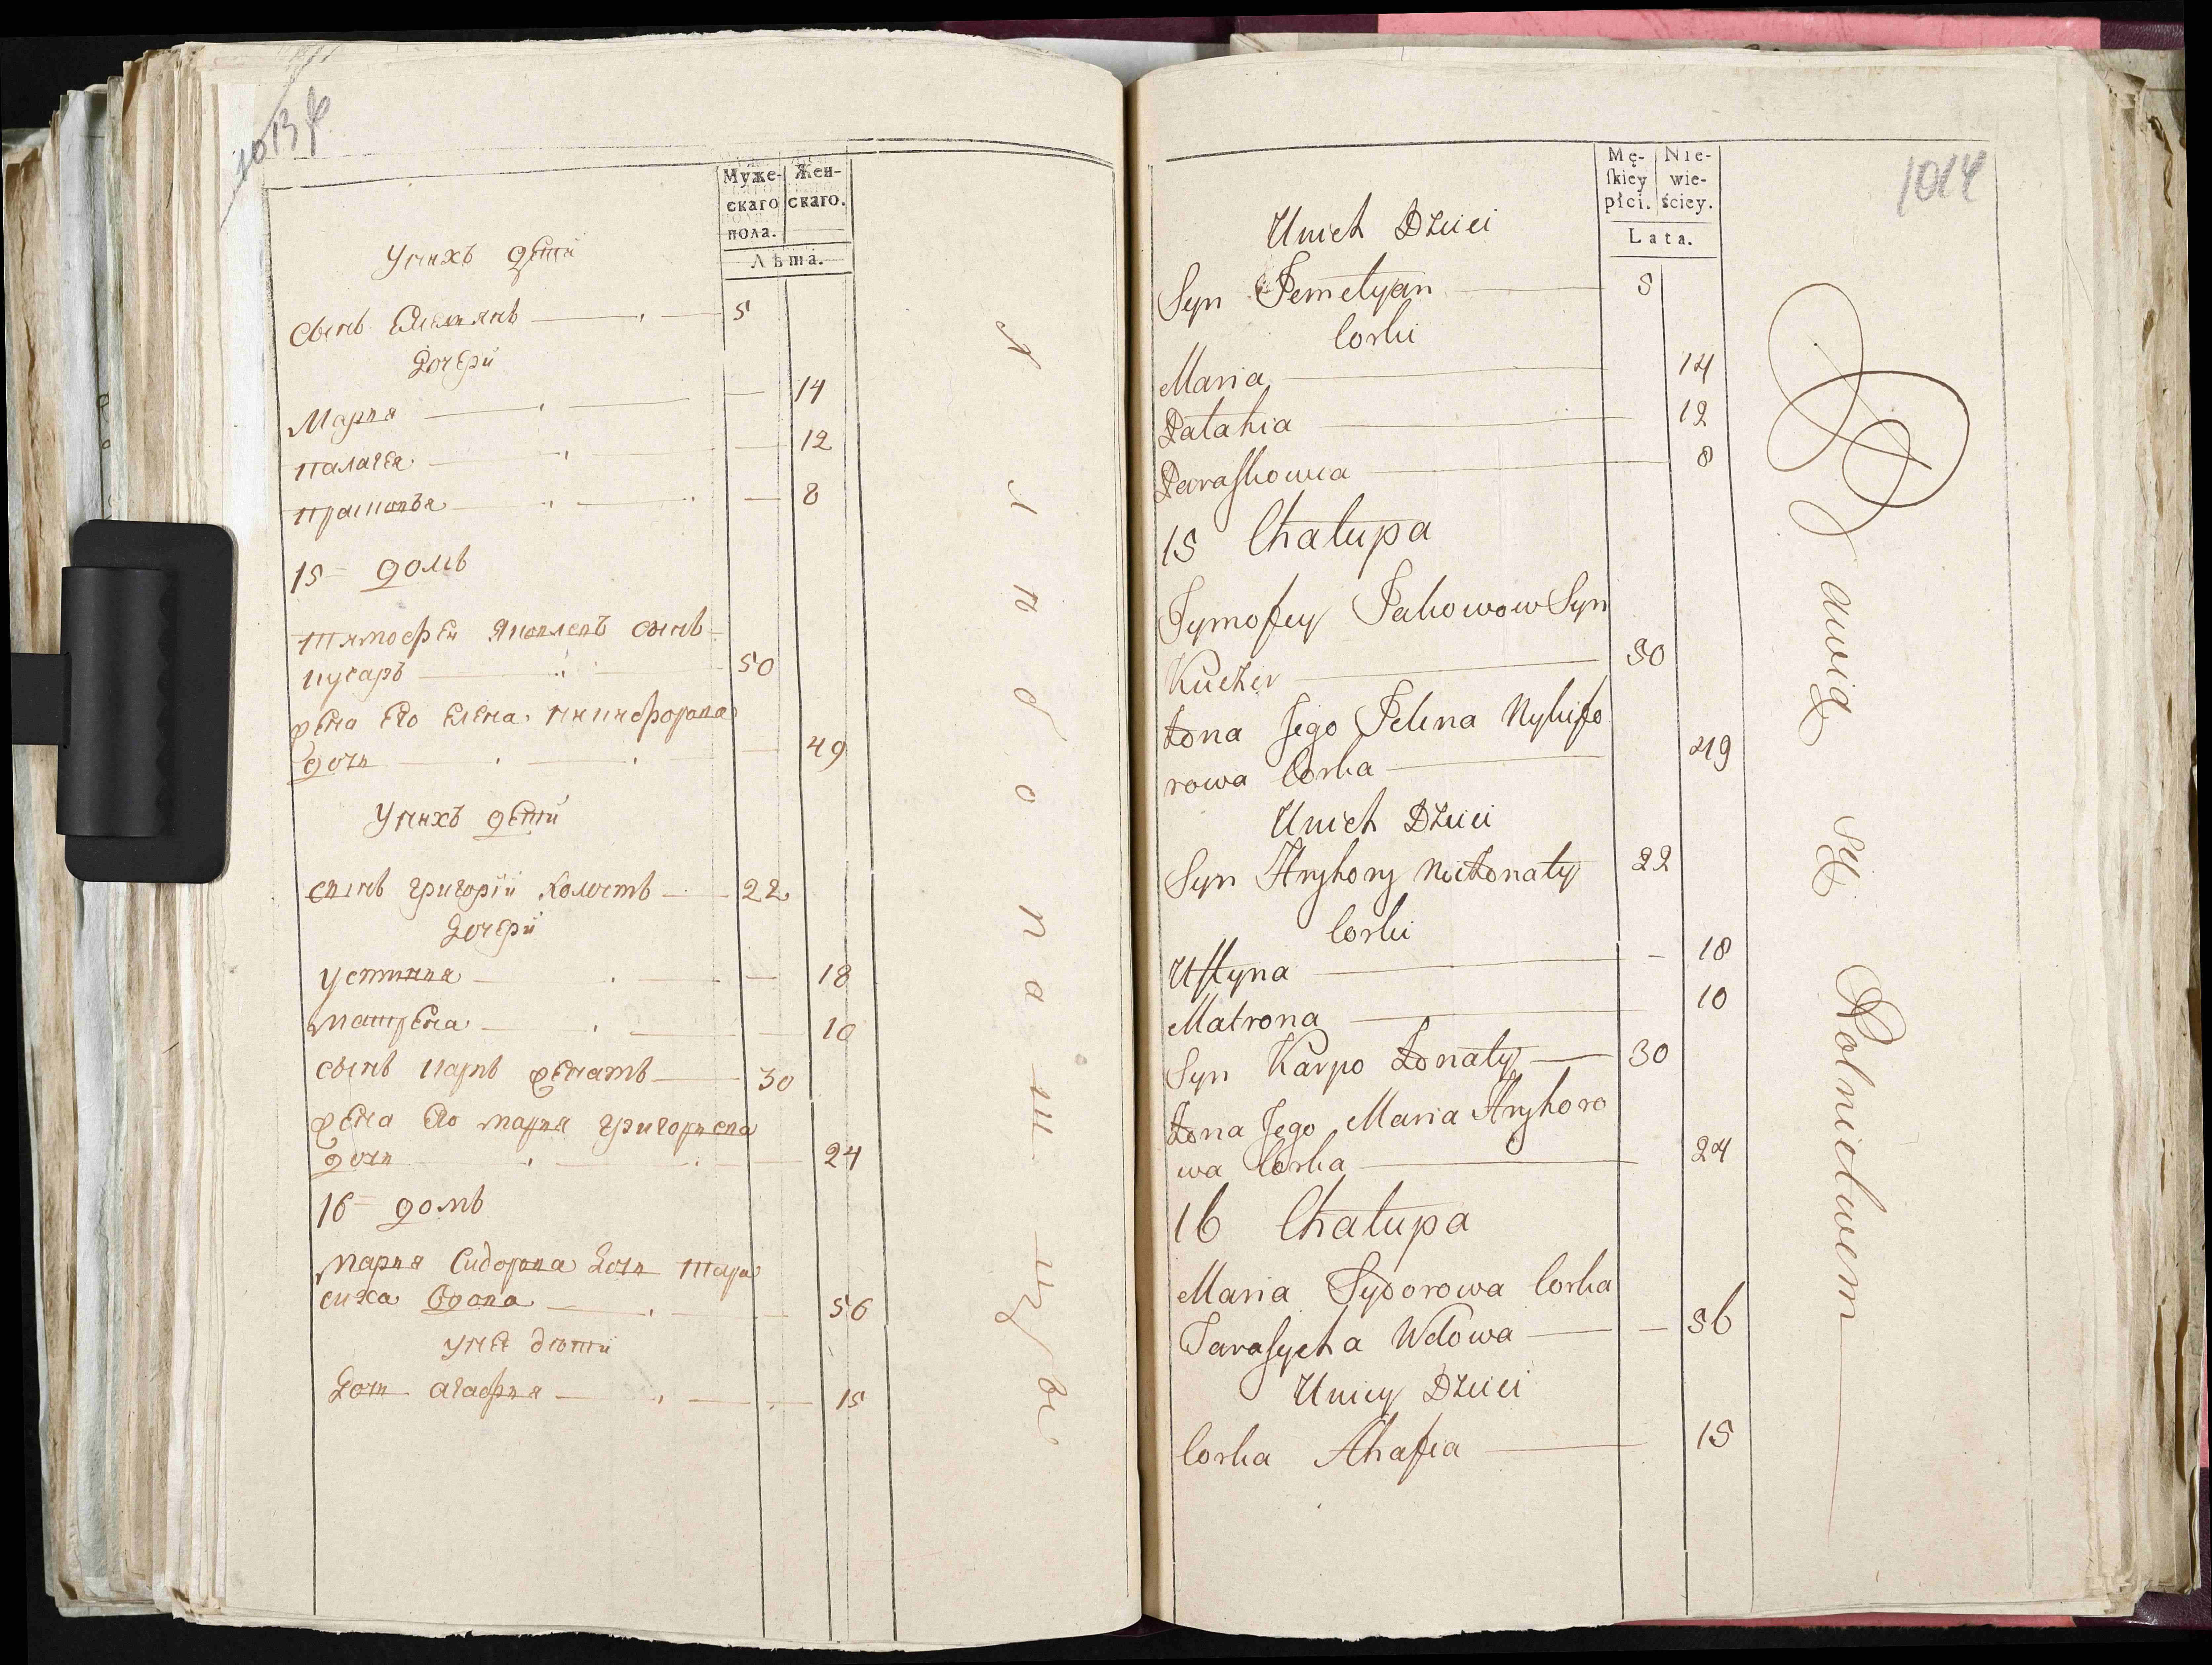 1013 об
Муже-
скаго
пола.
Жен-
скаго.
Лѣта.
У нихъ дети
сынъ Емелянъ 5
Дочери
Мария 14
Палагея 12
Прасковья 8
15 домъ
Тимофей Яковлевъ сынъ
кучаръ 50
жена его Елена Никифорова
дочь 49
У нихъ дети
сынъ григорiй холостъ 22
Дочери
устиния 18
матрена 10
сынъ карпъ женатъ 30
жена его мария григориева
дочь 24
16 домъ
мария Сидорова дочь Тара
сиха вдова 56
у ней дѣти
дочь агафия 15
хлѣбопашцы
1014
Mę-
skiey
płci.
Nie-
wie-
ściey.
Lata.
U nich Dzieci
Syn Jemelyan 5
Corki
Maria 14
Palahia 12
Paraskowia 8
15 Chalupa
Tymofey Jakowow Syn
Kuczer 50
Żona Jego Jelena Nykifo
rowa Corka 49
U nich Dzieci
Syn Hryhory nieżonaty 22
Corki
Ustyna 18
Matrona 10
Syn Karpo Żonaty 30
Żona Jego Maria Hryhoro
wa Corka 24
16 Chalupa
Maria Sydorowa Corka
Tarasycha Wdowa 56
U niey Dzieci
Corka Ahafia 15
Bawią się Rolnictwem